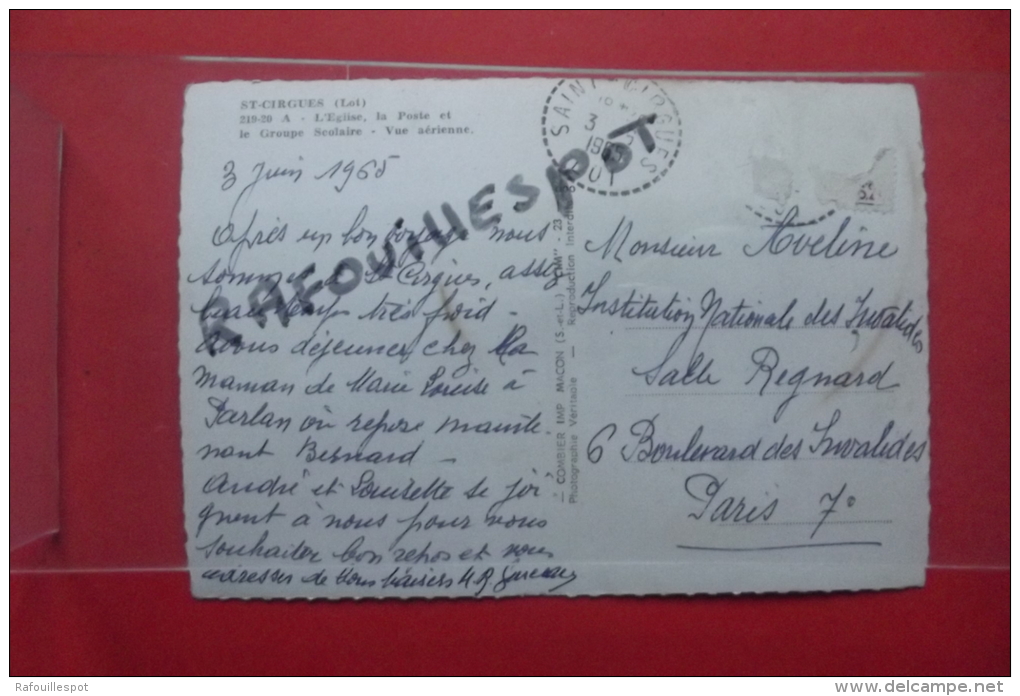 ST-CIRGUES (Lot)
219-20 A - L'Eglise, la Poste et
le Groupe Scolaire - Vue aérienne.
SAINT-CIRGUES
3
LOT
RAFOUILLESPOT
3 Juin 1965
Après un bon voyage nous
sommes à St Cirgues, assez
beau temps très froid -
Avons déjeuner chez la
maman de Marie Louise à
Parlan où repose mainte-
nant Bernard -
André et Louisette se joi
gnent à nous pour vous
souhaiter bon repos et vous
adresser de bons baisers
— COMBIER IMP MACON (S.-et-L.) "CIM" - 23
Photographie Véritable — Reproduction Interdite
Monsieur Aveline
Institution Nationale des Invalides
Salle Regnard
6 Boulevard des Invalides
Paris 7°
Rafouillespot
www.delcampe.net